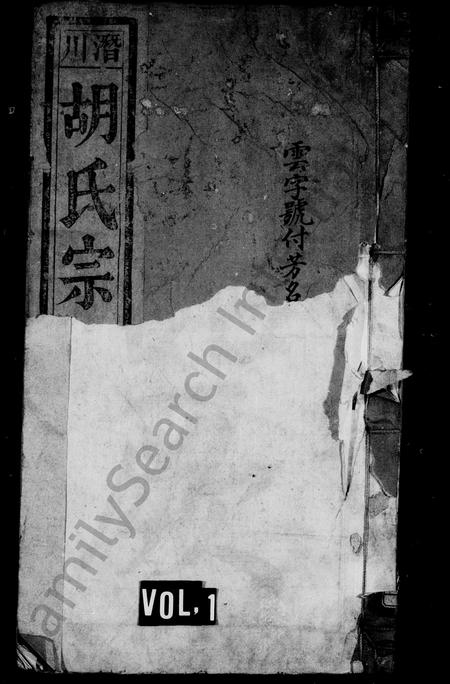 雲字號付芳名
潛川
胡氏宗
VOL, 1
FamilySearch In